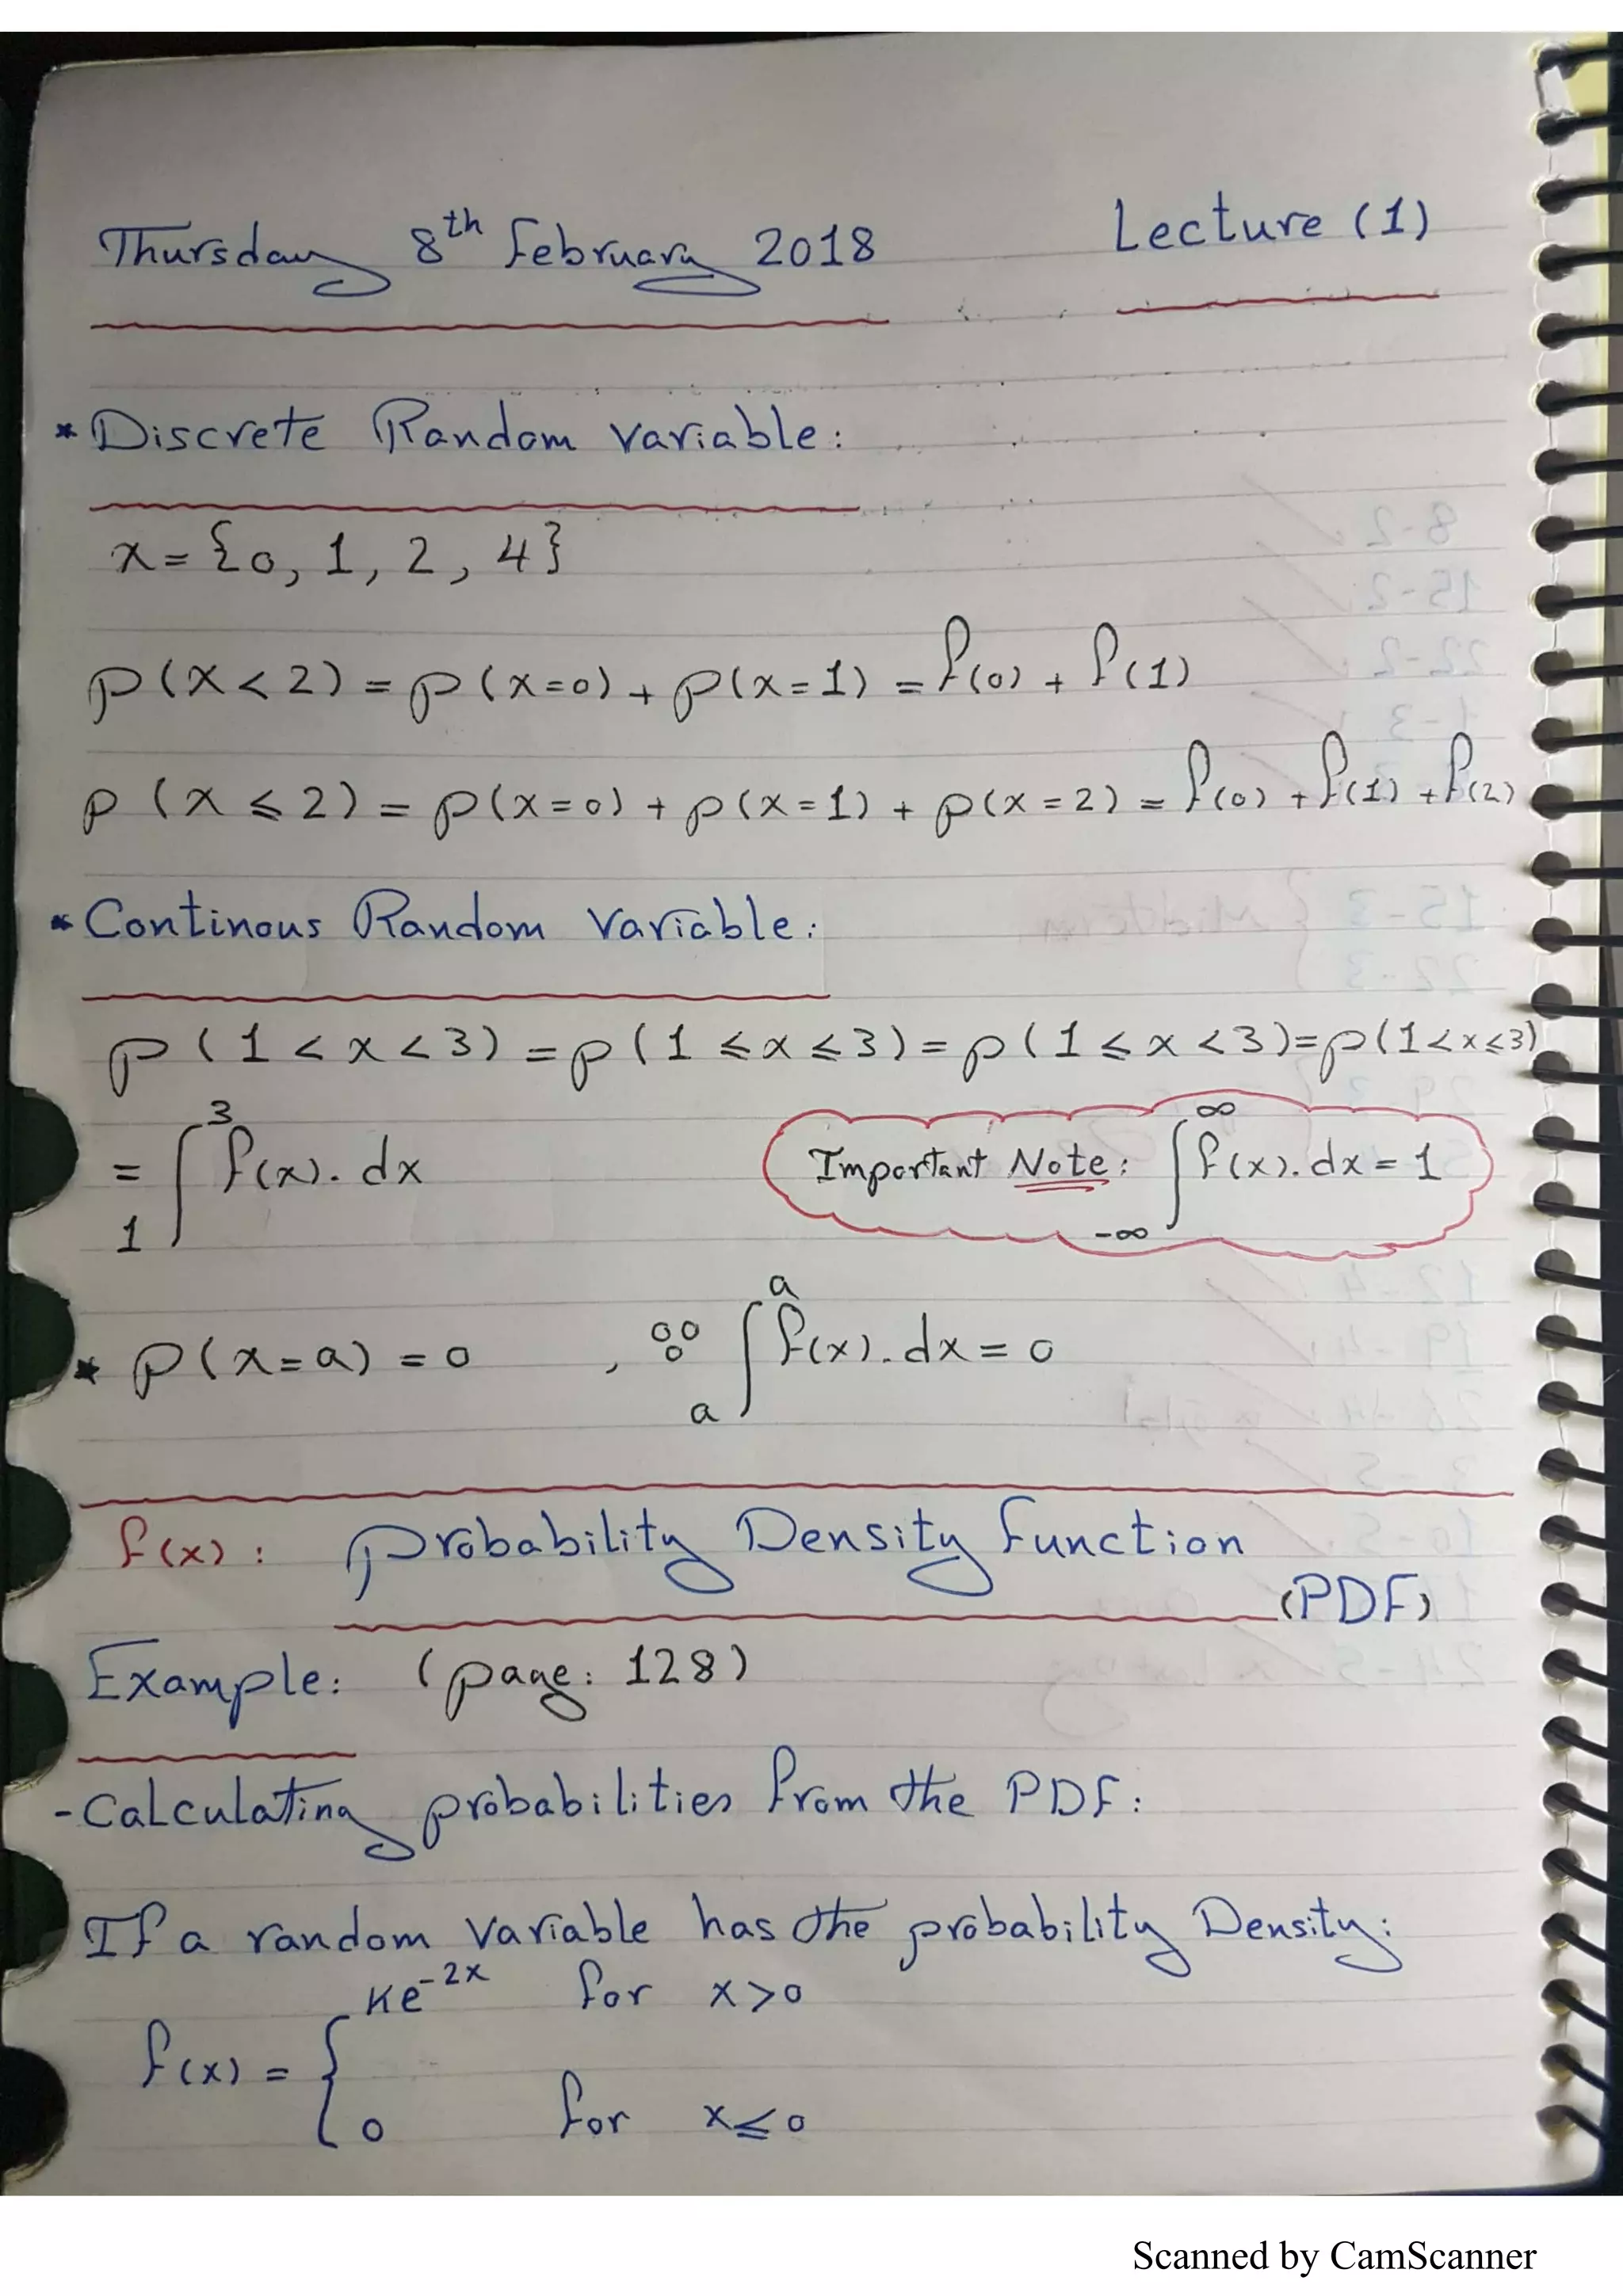 Thursday 8th February 2018 Lecture (1)
* Discrete Random Variable:
x = {0, 1, 2, 4}
P(x < 2) = P(x=0) + P(x=1) = f(0) + f(1)
P(x ⩽ 2) = P(x=0) + P(x=1) + P(x=2) = f(0) + f(1) + f(2)
* Continous Random Variable:
P(1 < x < 3) = P(1 ⩽ x ⩽ 3) = P(1 ⩽ x < 3) = P(1 < x ⩽ 3)
= ∫₁³ f(x). dx Important Note: ∫_{-∞}^{∞} f(x). dx = 1
* P(x=a) = 0 , ∵ ∫ₐᵃ f(x). dx = 0
f(x): Probability Density Function
(PDF)
Example: (page: 128)
- Calculating probabilities from the PDF:
If a random variable has the probability Density:
f(x) = { Ke^{-2x} for x > 0
0 for x ⩽ 0
Scanned by CamScanner